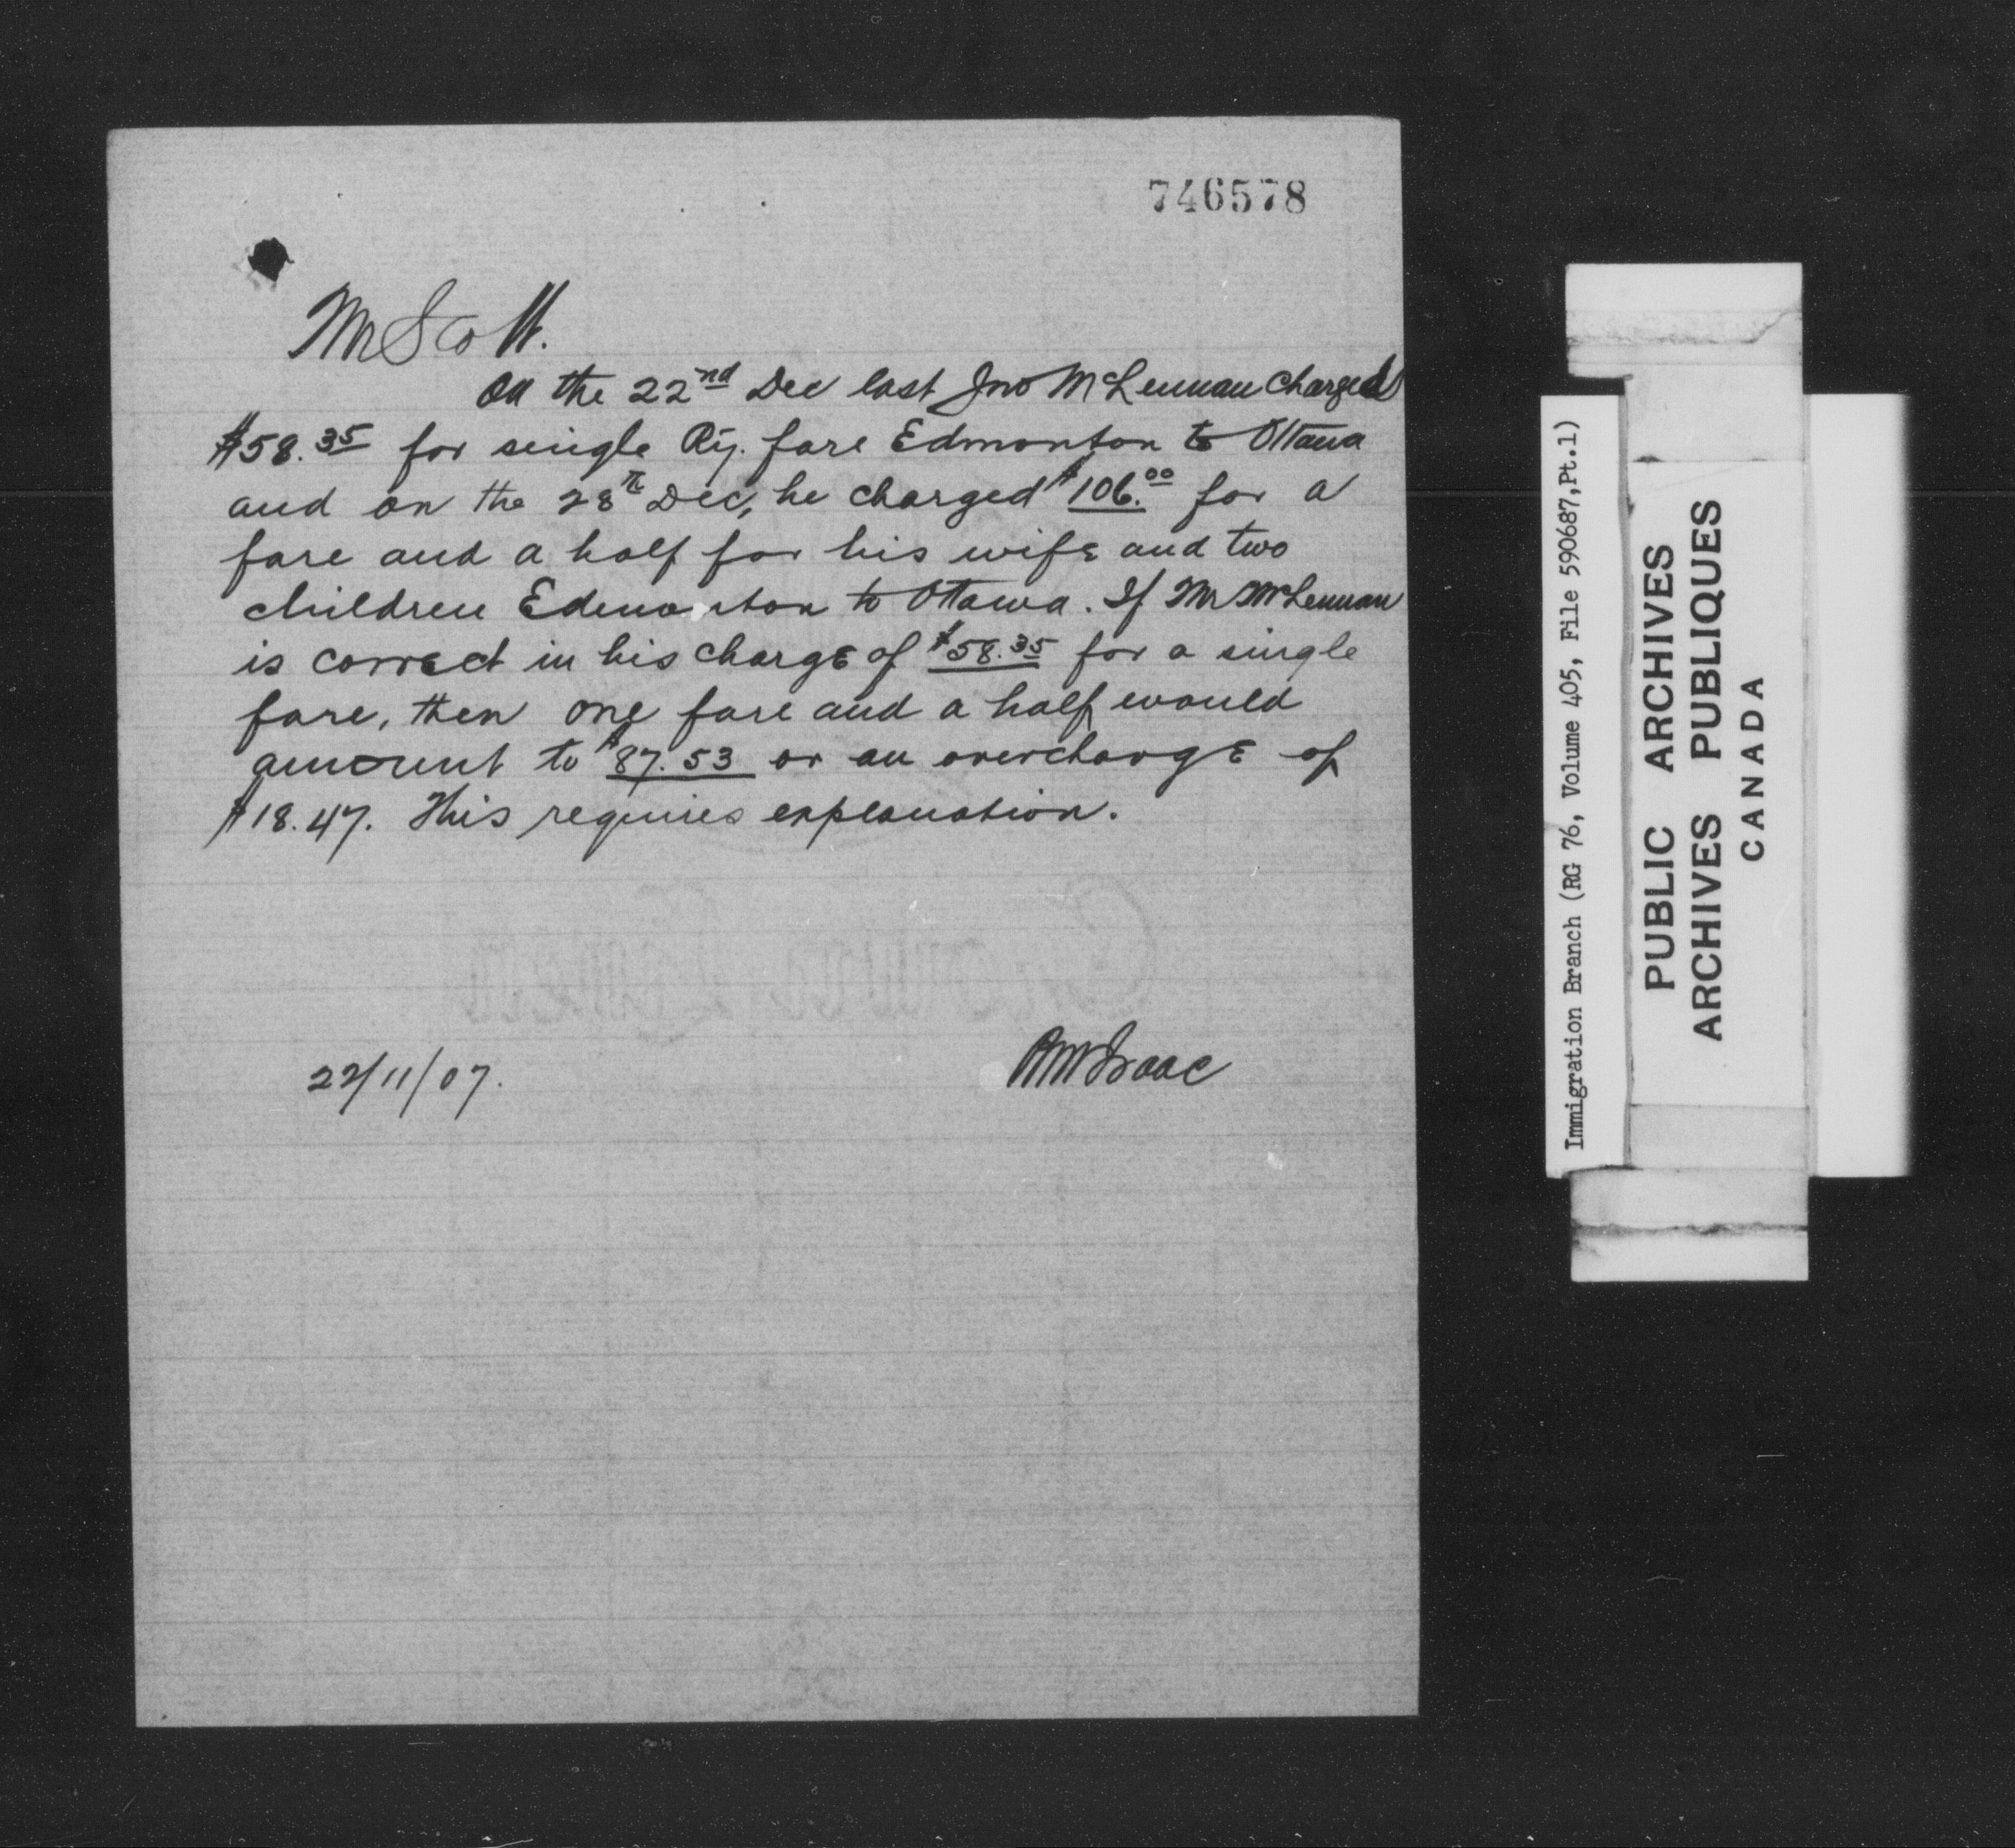 746578
Mr Scott.
On the 22nd Dec last Jno McLennan charged
$58.35 for single Ry. fare Edmonton to Ottawa
and on the 28th Dec, he charged $106.00 for a
fare and a half for his wife and two
children Edmonton to Ottawa. If Mr McLennan
is correct in his charge of $58.35 for a single
fare, then one fare and a half would
amount to $87.53 or an overcharge of
$18.47. This requires explanation.
22/11/07.
Immigration Branch (RG 76, Volume 405, File 590687,Pt.1)
PUBLIC ARCHIVES
ARCHIVES PUBLIQUES
CANADA